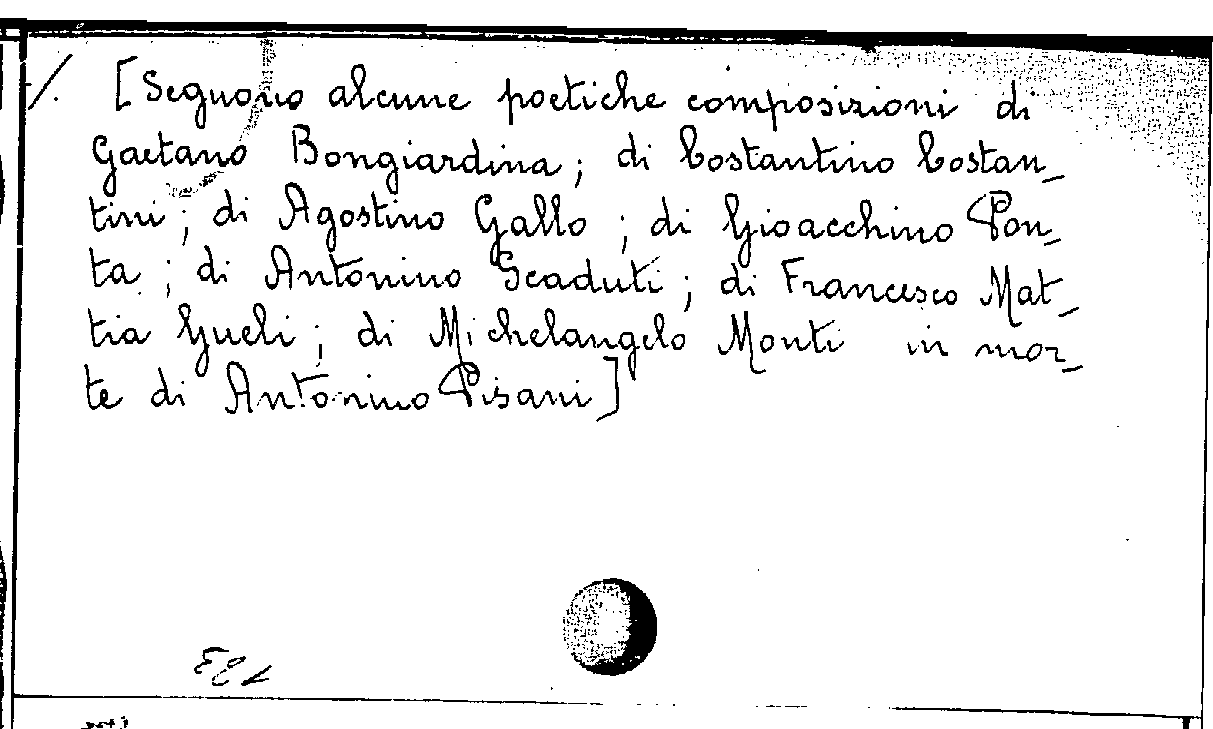 ./. [Seguono alcune poetiche composizioni di
Gaetano Bongiardina; di Costantino Costan_
tini; di Agostino Gallo; di Gioacchino Pon_
ta; di Antonino Scaduti; di Francesco Mat_
tia Gueli; di Michelangelo Monti in mor_
te di Antonino Pisani]
123